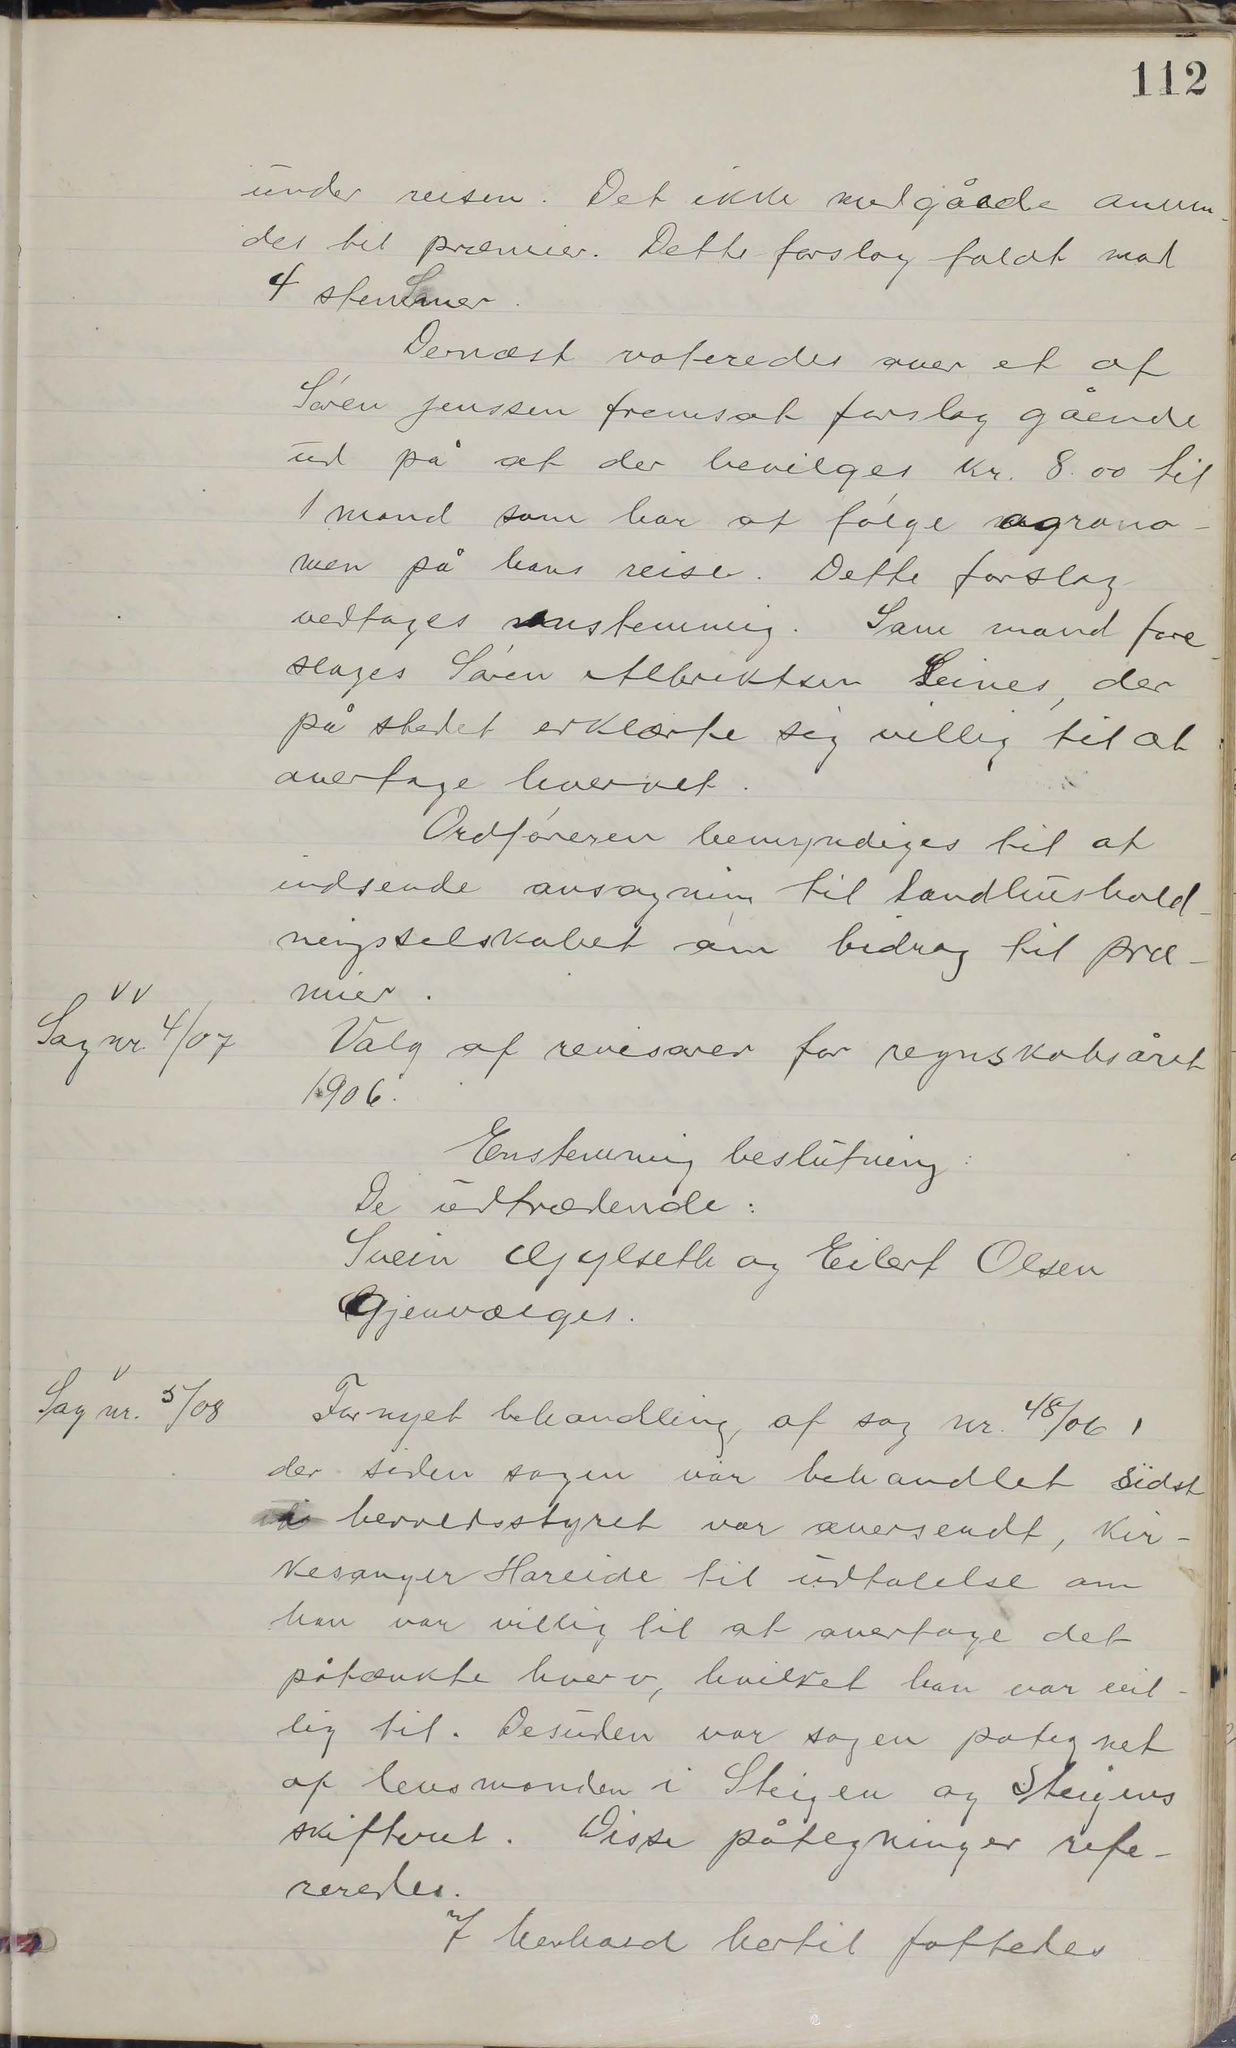 112
under reisen. Det ikke medgåede anven-
des til præmier. Dette forslag faldt mod
4 stemmer.
Dernæst voteredes over et af
Søren Jenssen fremsat forslag gående
ud på at der bevilges kr. 8.00 til
1 mand som har at følge agrono-
men på hans reise. Dette forslag
vedtages enstemmig. Som mand fore-
slages Søren Albriktsen Leines, der
på stedet erklærte sig villig til at
overtage hvervet.
Ordføreren bemyndiges til at
indsende ansøgning til Landhushold-
ningsselskabet om bidrag til præ-
mier.
Sag nr. 4/07
Valg af revisorer for regnskabsåret
1906.
Enstemmig beslutning:
De udtrædende:
Svein Gylseth og Eilert Olsen
Gjenvælges.
Sag nr. 5/08
Fornyet behandling af sag nr. 48/06,
der siden sagen var behandlet sidst
i herredsstyret var oversendt, kir-
kesanger Hareide til udtalelse om
han var villig til at overtage det
påtænkte hverv, hvilket han var vil-
lig til. Desuden var sagen pategnet
af lensmanden i Steigen og Steigens
skifteret. Disse påtegninger refe-
reredes.
I henhold hertil fattedes